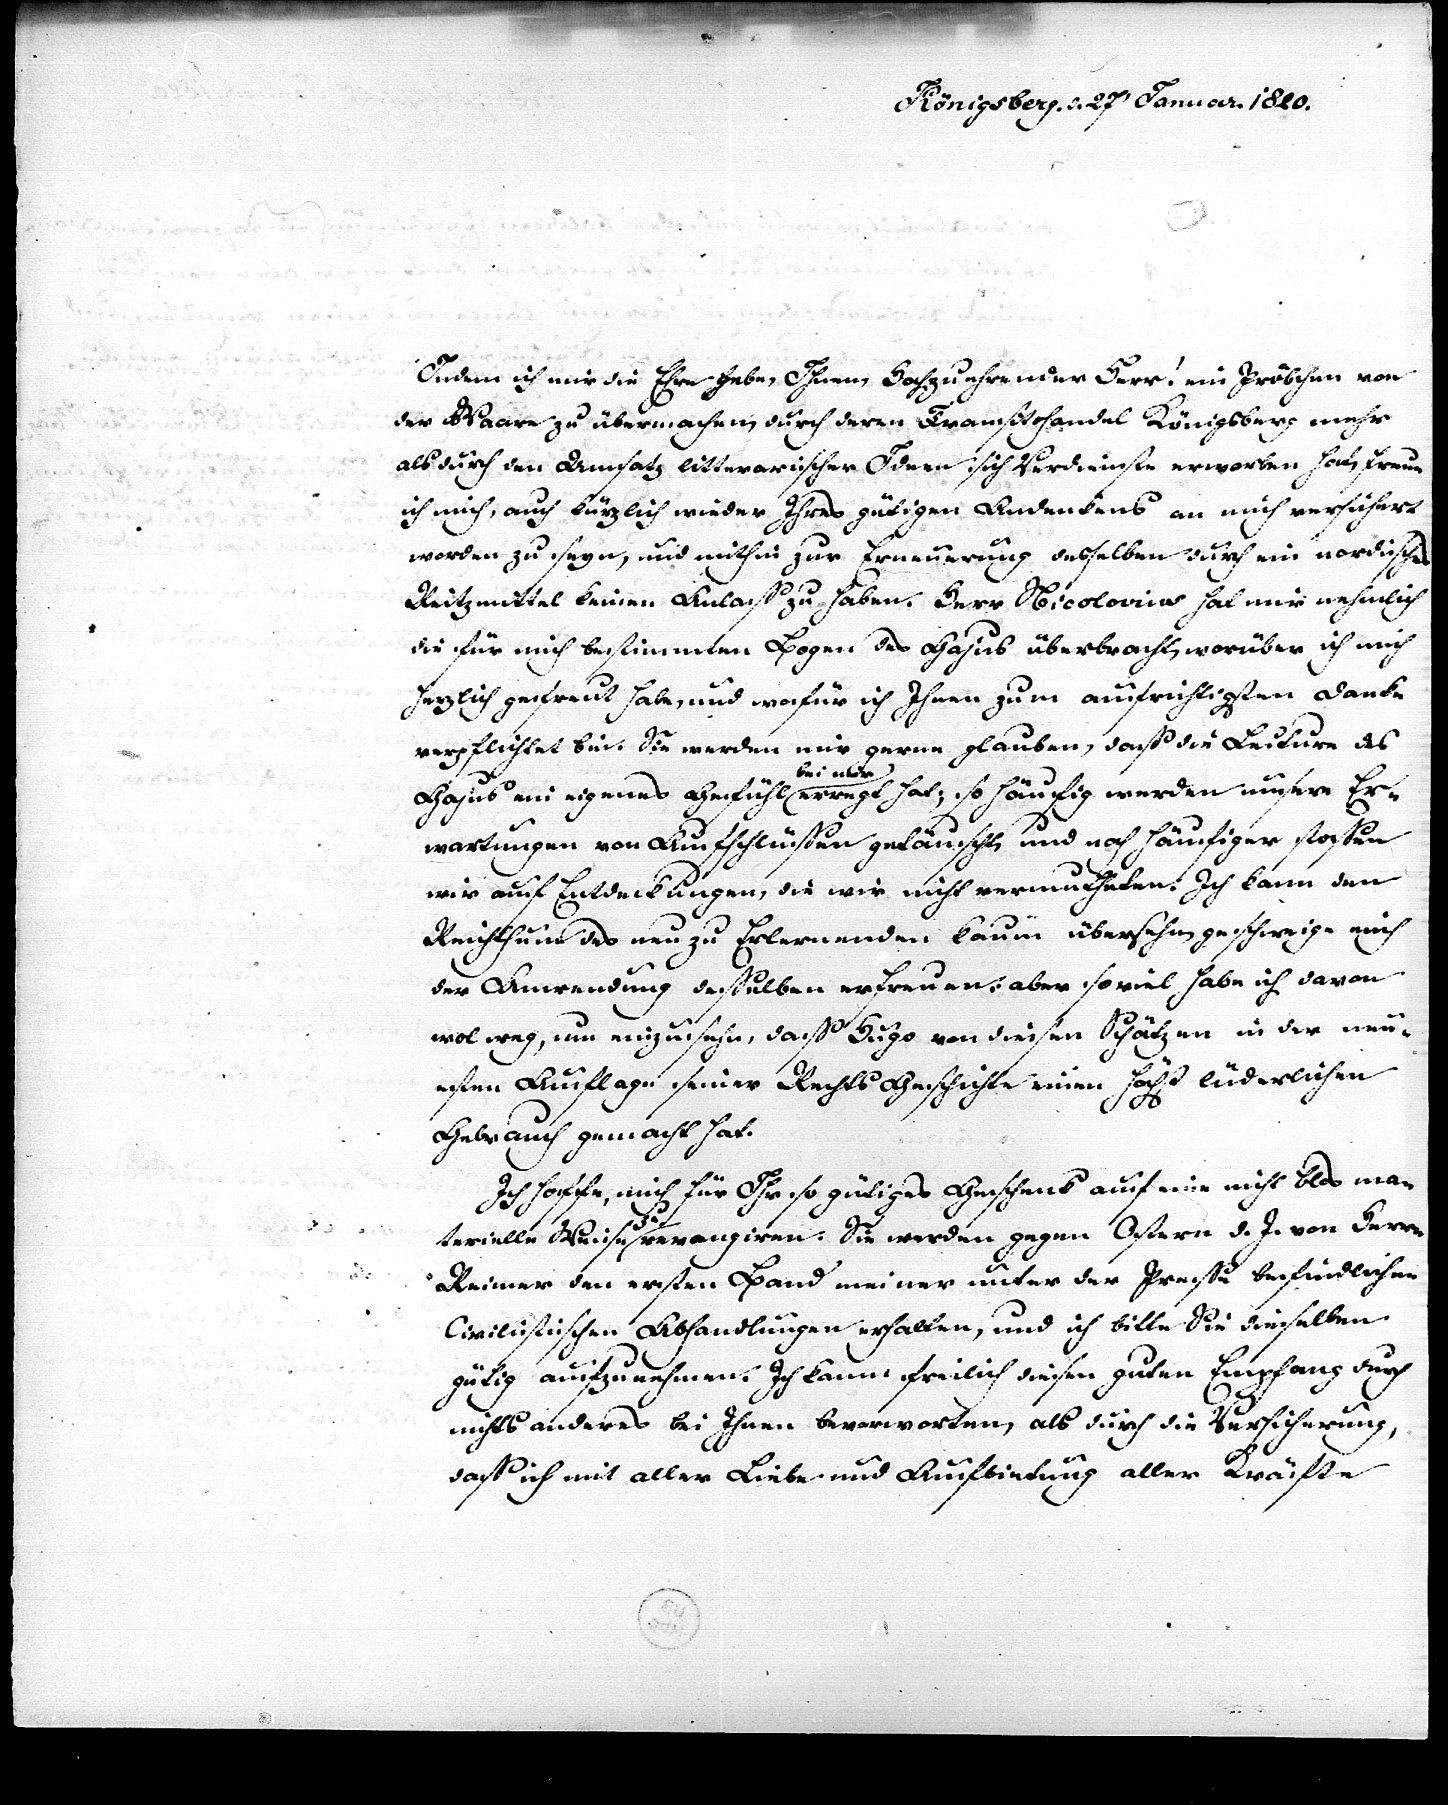 Königsberg. d. 27' Januar. 1820.
Indem ich mir die Ehre gebe, Ihnen, Hochzuehrender Herr! ein Pröbchen von
der Waare zu übermachen, durch deren Transitohandel Königsberg mehr
als durch den Umsatz litterarischer Ideen sich Verdienste erworben hat, freue
ich mich, auch kürzlich wieder Ihres gütigen Andenkens an mich versichert
worden zu seyn, und mithin zur Erneuerung desselben durch ein nordisches
Reitzmittel keinen Anlaß zu haben. Herr Nicolovius hat mir nehmlich
die für mich bestimmten Bogen des Gajus überbracht, worüber ich mich
herzlich gefreut habe, und wofür ich Ihnen zum aufrichtigsten Danke
verpflichtet bin. Sie werden mir gerne glauben, daß die Lecture des
bei mir
Gajus ein eigenes Gefühl erregt hat; so häufig werden unsere Er-
wartungen von Aufschlüssen getäuscht, und noch häufiger stoßen
wir auf Entdeckungen, die wir nicht vermutheten. Ich kann den
Reichthum des neu zu Erlernenden kaum übersehn, geschweige mich
der Anwendung desselben erfreuen: aber soviel habe ich davon
wol weg, um einzusehn, daß Hugo von diesen Schätzen in der neu-
esten Auflage seiner Rechts Geschichte einen höchst lüderlichen
Gebrauch gemacht hat.
Ich hoffe, mich für Ihr so gütiges Geschenk auf eine nicht blos ma-
zu
terielle Weise revangiren. Sie werden gegen Ostern d. J. von Herrn
Reimer den ersten Band meiner unter der Presse befindlichen
Civilistischen Abhandlungen erhalten, und ich bitte Sie dieselben
gütig aufzunehmen. Ich kann freilich diesen guten Empfang durch
nichts anderes bei Ihnen bevorworten, als durch die Versicherung,
daß ich mit aller Liebe und Aufbietung aller Kräfte